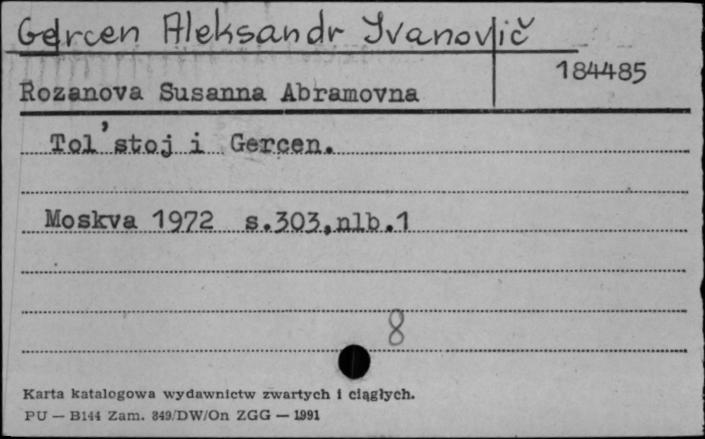 Gercen Aleksandr Ivanovič
184485
Rozanova Susanna Abramovna
Tol'stoj i Gercen.
Moskva 1972 s.303,nlb.1
8
Karta katalogowa wydawnictw zwartych i ciągłych.
PU — B144 Zam. 349/DW/On ZGG — 1991